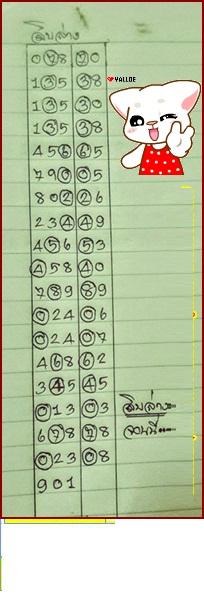 สิบล่าง
078 70
135 38
YALLOE
135 30
135 38
456 65
790 05
802 26
234 49
456 53
458 40
789 89
024 06
024 07
468 62
345 45
013 03 สิบล่าง
678 78
023 08
901